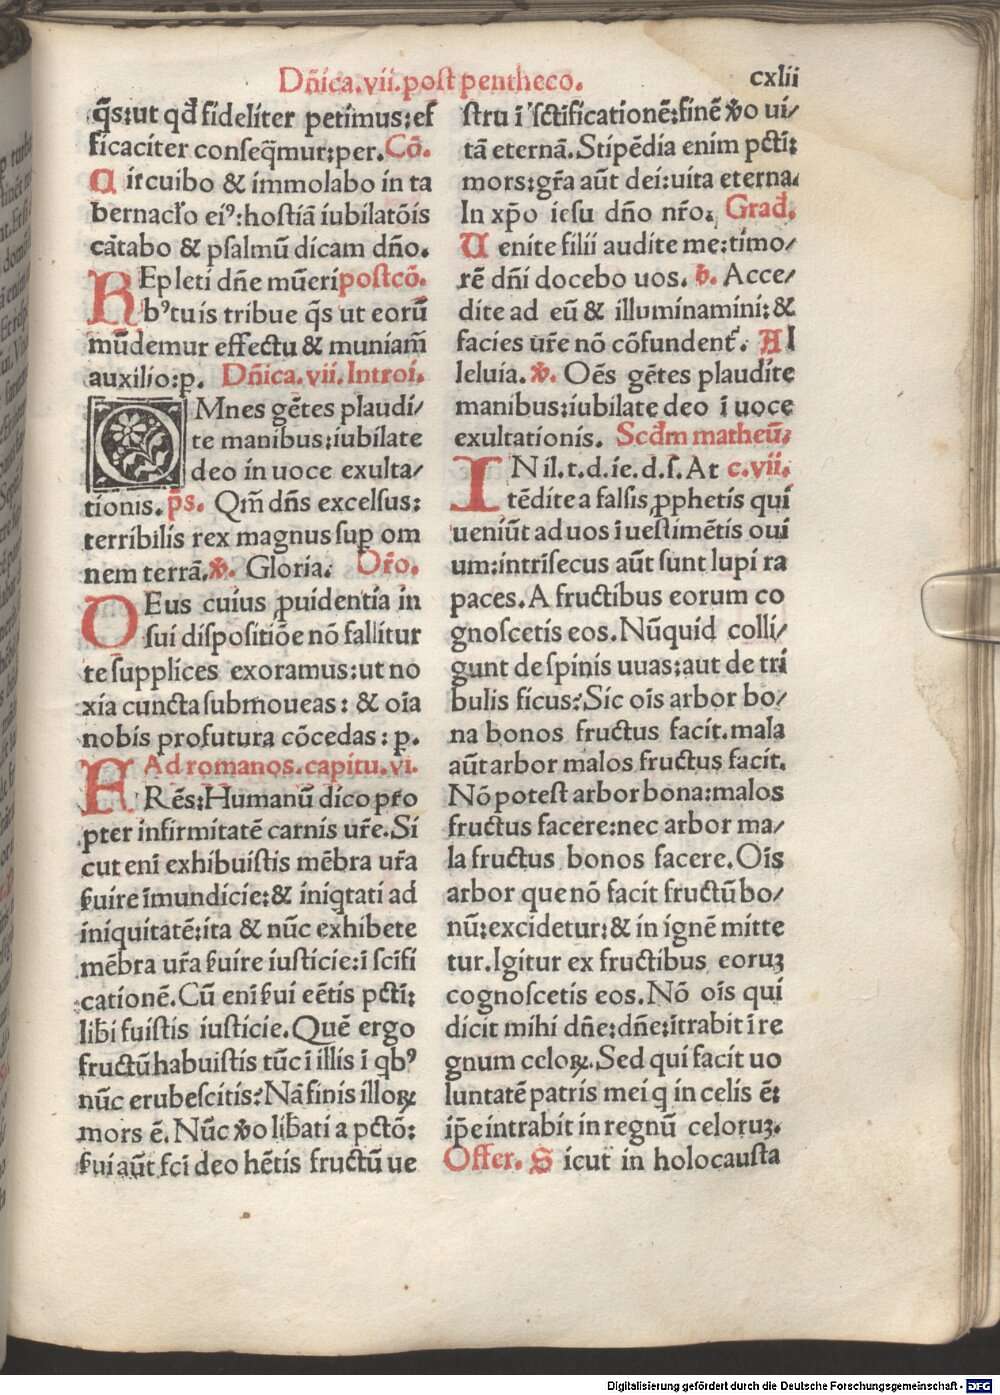 Dñica.vii.post pentheco.
cxlii
q̃s:ut qđ fideliter petimus:ef
ficaciter conseq̃mur:per. Cō.
Circuibo & immolabo in ta
bernacło eiꝰ:hostiā iubilatōis
cātabo & psalmū dicam dño.
REpleti dñe mūeri postcō.
bꝰ tuis tribue q̃s ut eorū
mūdemur effectu & muniam̄
auxilio:p. Dñica.vii.Introi.
OMnes gētes plaudi/
te manibus:iubilate
deo in uoce exulta/
tionis. p̄s. Qm̄ dñs excelsus:
terribilis rex magnus sup̱ om
nem terrā. ꝟ. Gloria. Or̄o.
DEus cuius ꝓuidentia in
sui dispositiōe nō fallitur
te supplices exoramus:ut no
xia cuncta submoueas: & oīa
nobis profutura cōcedas: p.
Ad romanos.capitu.vi.
FRēs:Humanū dico pro
pter infirmitatē carnis ur̄e.Si
cut enī exhibuistis mēbra ur̄a
ẜuire īmundicie:& iniq̱tati ad
iniquitatē:ita & nūc exhibete
mēbra ur̄a ẜuire iusticie:ī scīfi
cationē.Cū enī ẜui eētis pcti:
libi fuistis iusticie.Quē ergo
fructū habuistis tūc ī illis ī qbꝰ
nūc erubescitis?Nā finis illoꝝ
mors ē. Nūc ꝟo libati a pctō:
ẜui aūt fci deo hētis fructū ue
stru ī sctificationē:finē ꝟo ui/
tā eternā.Stipēdia enim pcti:
mors:gr̄a aūt dei:uita eterna.
In xp̄o iesu dño nr̄o. Građ.
Uenite filii audite me:timo/
rē dñi docebo uos. ꝟ. Acce/
dite ad eū & illuminamini:&
facies ur̄e nō cōfundent̄. Al
leluia. ꝟ. Oēs gētes plaudite
manibus:iubilate deo ī uoce
exultationis. Scđm matheū.
IN il.t.d.ie.d.s.At c.vii.
tēdite a falsis ꝓphetis qui
ueniūt ad uos ī uestimētis oui
um:intrisecus aūt sunt lupi ra
paces.A fructibus eorum co
gnoscetis eos.Nūquid colli/
gunt de spinis uuas:aut de tri
bulis ficus?Sic oīs arbor bo/
na bonos fructus facit.mala
aūt arbor malos fructus facit.
Nō potest arbor bona:malos
fructus facere:nec arbor ma/
la fructus bonos facere.Oīs
arbor que nō facit fructū bo/
nū:excidetur:& in ignē mitte
tur.Igitur ex fructibus eoruꝫ
cognoscetis eos.Nō oīs qui
dicit mihi dñe:dñe:ītrabit ī re
gnum celoꝝ.Sed qui facit uo
luntatē patris mei q in celis ē:
ip̄e intrabit in regnū celoruꝫ.
Offer. Sicut in holocausta
Digitalisierung gefördert durch die Deutsche Forschungsgemeinschaft - DFG